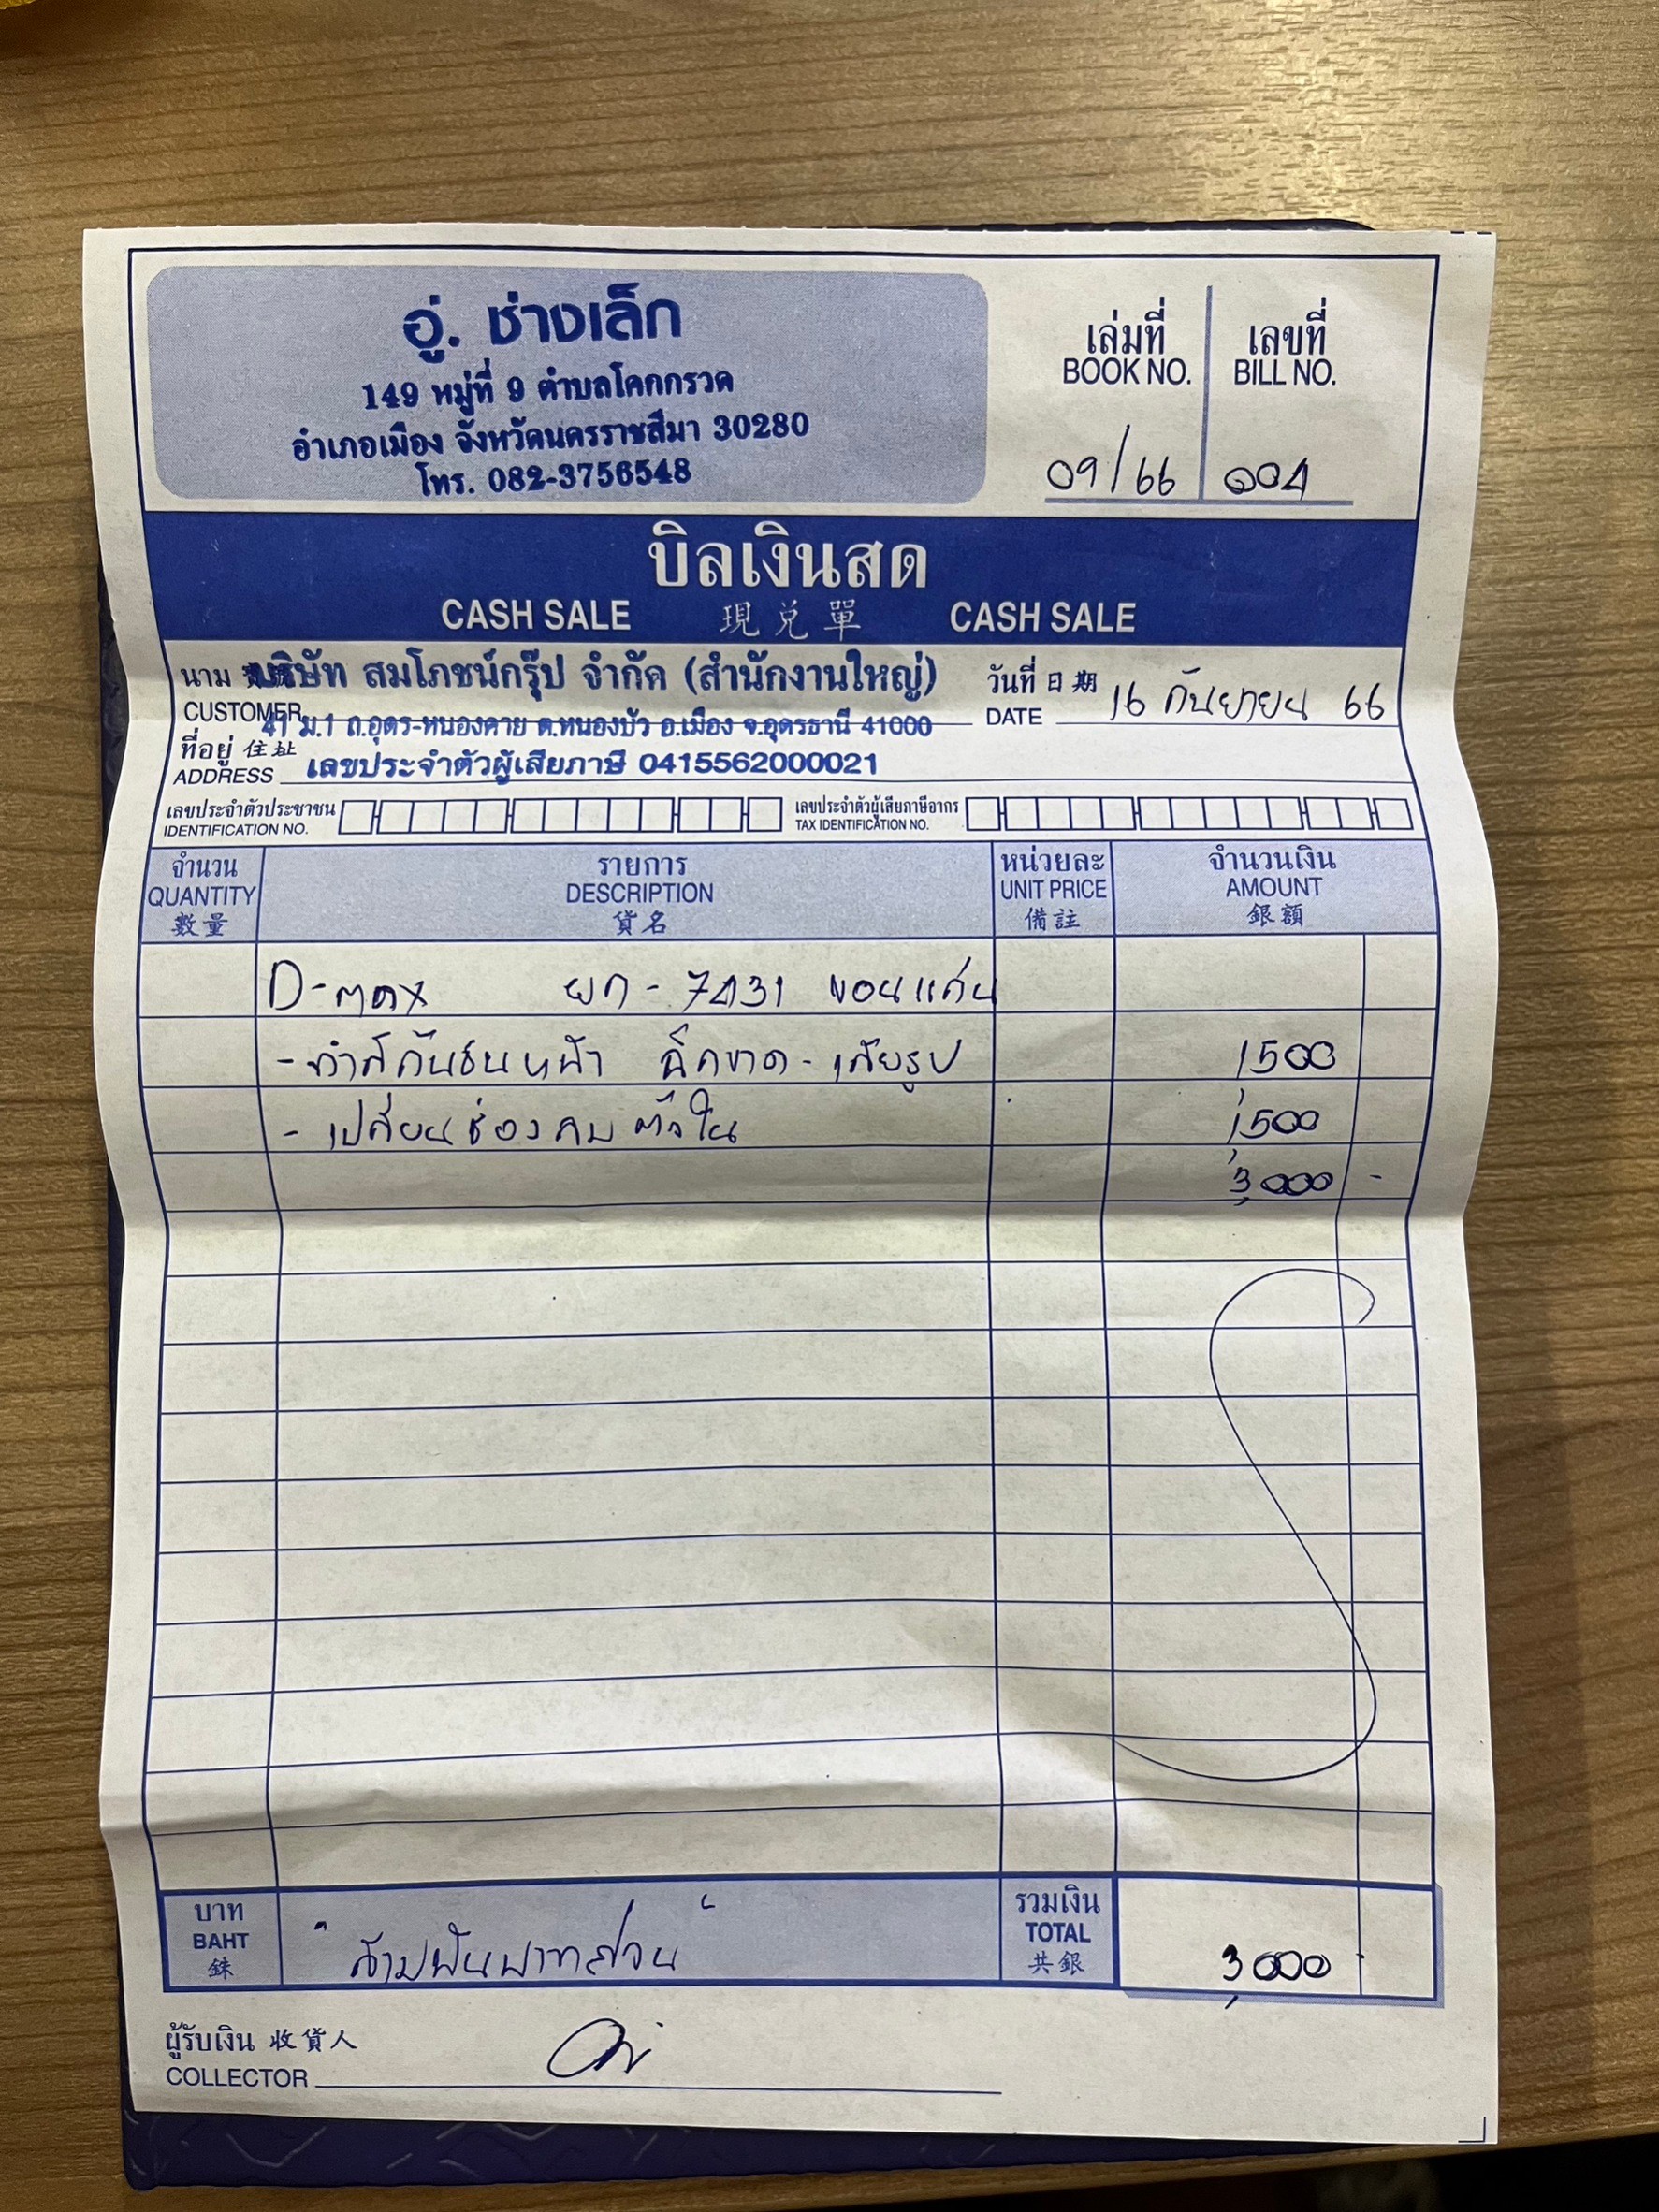 อู่. ช่างเล็ก
149 หมู่ที่ 9 ตำบลโคกกรวด
อำเภอเมือง จังหวัดนครราชสีมา 30280
โทร. 082-3756548
เล่มที่ เลขที่
BOOK NO. BILL NO.
09/66 ๑04
บิลเงินสด
CASH SALE 現兌單 CASH SALE
นาม บริษัท สมโภชน์กรุ๊ป จำกัด (สำนักงานใหญ่) วันที่ 日期 16 กันยายน 66
CUSTOMER 41 ม.1 ถ.อุดร-หนองคาย ต.หนองบัว อ.เมือง จ.อุดรธานี 41000 DATE
ที่อยู่ 住址
ADDRESS เลขประจำตัวผู้เสียภาษี 0415562000021
เลขประจำตัวประชาชน เลขประจำตัวผู้เสียภาษีอากร
IDENTIFICATION NO. TAX IDENTIFICATION NO.
จำนวน รายการ หน่วยละ จำนวนเงิน
QUANTITY DESCRIPTION UNIT PRICE AMOUNT
數量 貨名 備註 銀額
D-max ผก - 7431 ขอนแก่น
- ทำสีกันชนหน้า ฉีกขาด - เสียรูป 1500
- เปลี่ยนช่องลม ตัวใน 1,500
3,000 -
บาท รวมเงิน
BAHT สามพันบาทถ้วน TOTAL 3,000 -
銖 共銀
ผู้รับเงิน 收貨人
COLLECTOR